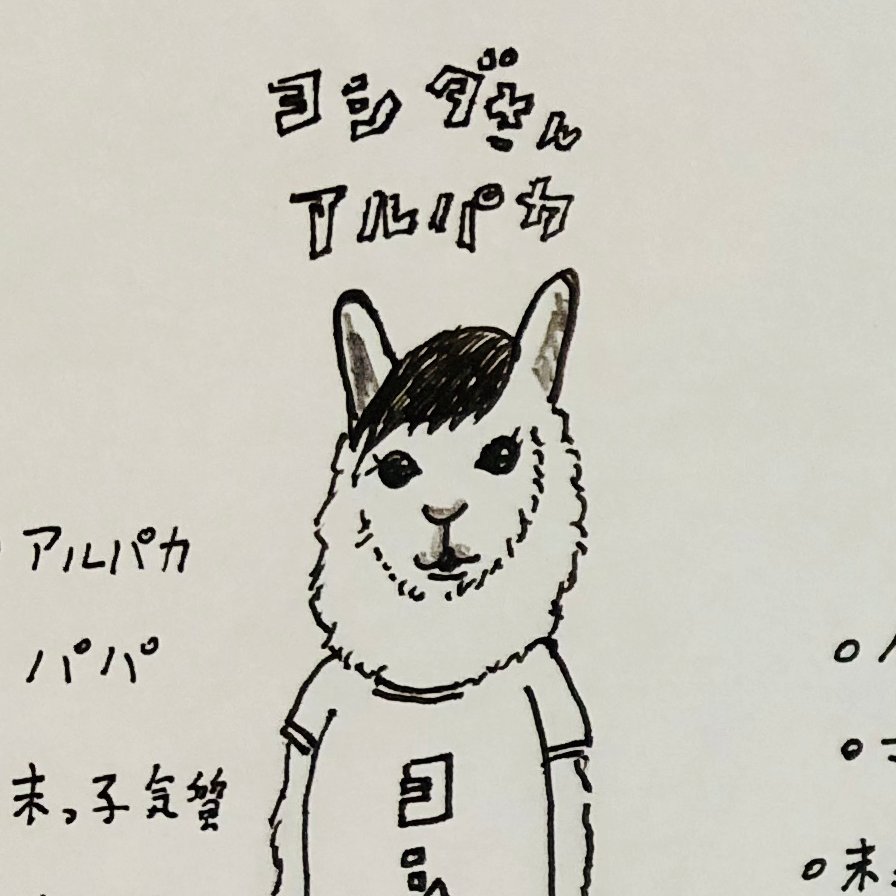 ヨシダさん
アルパカ
アルパカ
パパ
末っ子気質
ヨシ
末